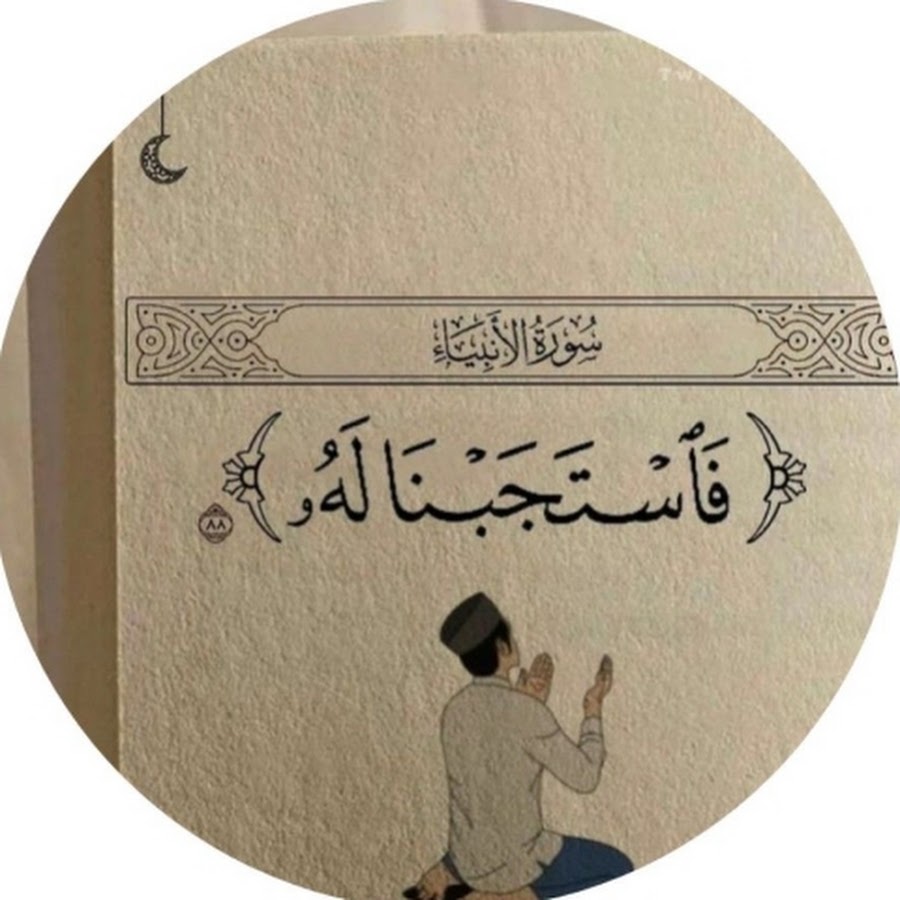 سُورَةُ الأَنبِيَاءِ
فَٱسْتَجَبْنَا لَهُۥ ٨٨